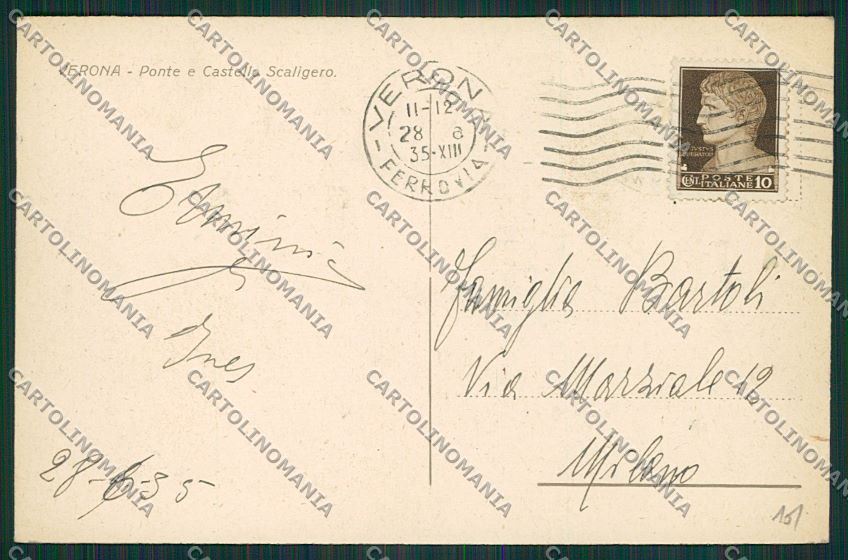 VERONA - Ponte e Castello Scaligero.
VERONA
11-12
28 8
35-XIII
FERROVIA
IVSTVS
IMPERATOR
CENT. POSTE ITALIANE 10
Erminia
e
Ines
28-8-35
Famiglia Bartoli
Via Marziale 12
Milano
CARTOLINOMANIA